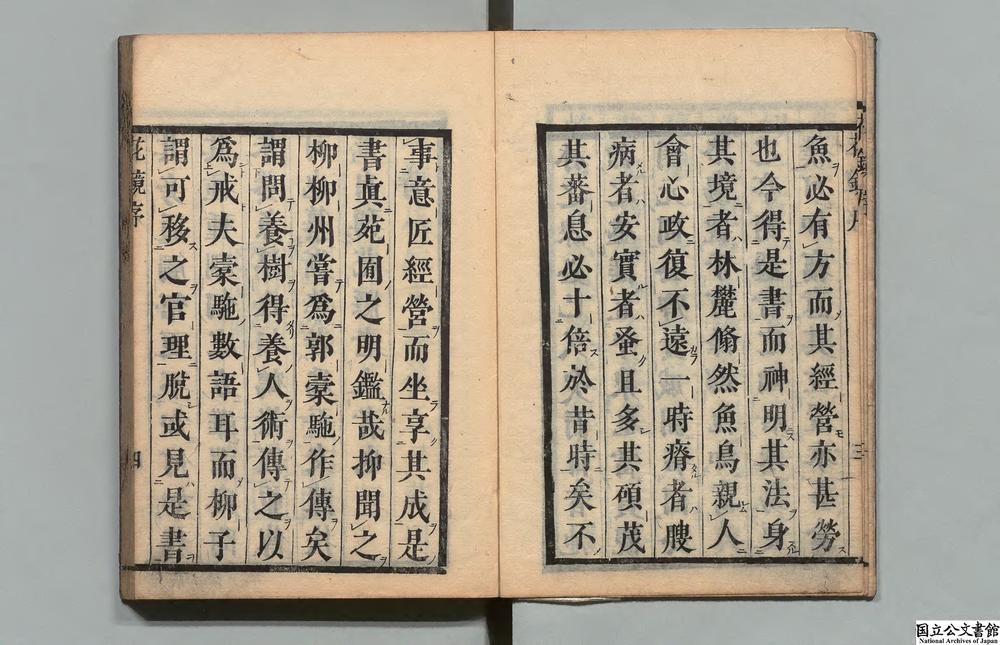 魚必有方而其經營亦甚勞
也今得是書而神明其法身
其境者林麓翛然魚鳥親人
會心政復不遠一時瘠者腴
病者安實者蚤且多其碩茂
其蕃息必十倍於昔時矣不
事意匠經營而坐享其成是
書眞苑囿之明鑑哉抑聞之
柳柳州嘗爲郭橐駞作傳矣
謂問養樹得養人術傳之以
爲戒夫橐駞數語耳而柳子
謂可移之官理脫或見是書
花鏡序
四
国立公文書館
National Archives of Japan